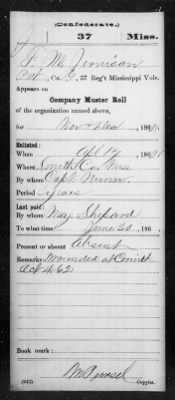 (Confederate.)
37 Miss.
J. M. Jimican
Pvt, Co. G, 37 Reg't Mississippi Vols.
Appears on
Company Muster Roll
of the organization named above,
for Nov & Dec, 186
Enlisted:
When Apl 12, 186
Where Smith Co. Miss
By whom Capt.
Period years
Last paid:
By whom Maj. Shepard
To what time June 30, 186
Present or absent Absent
Remarks: Wounded at Corinth
Oct 4 62
Book mark:
(642)
Copyist.